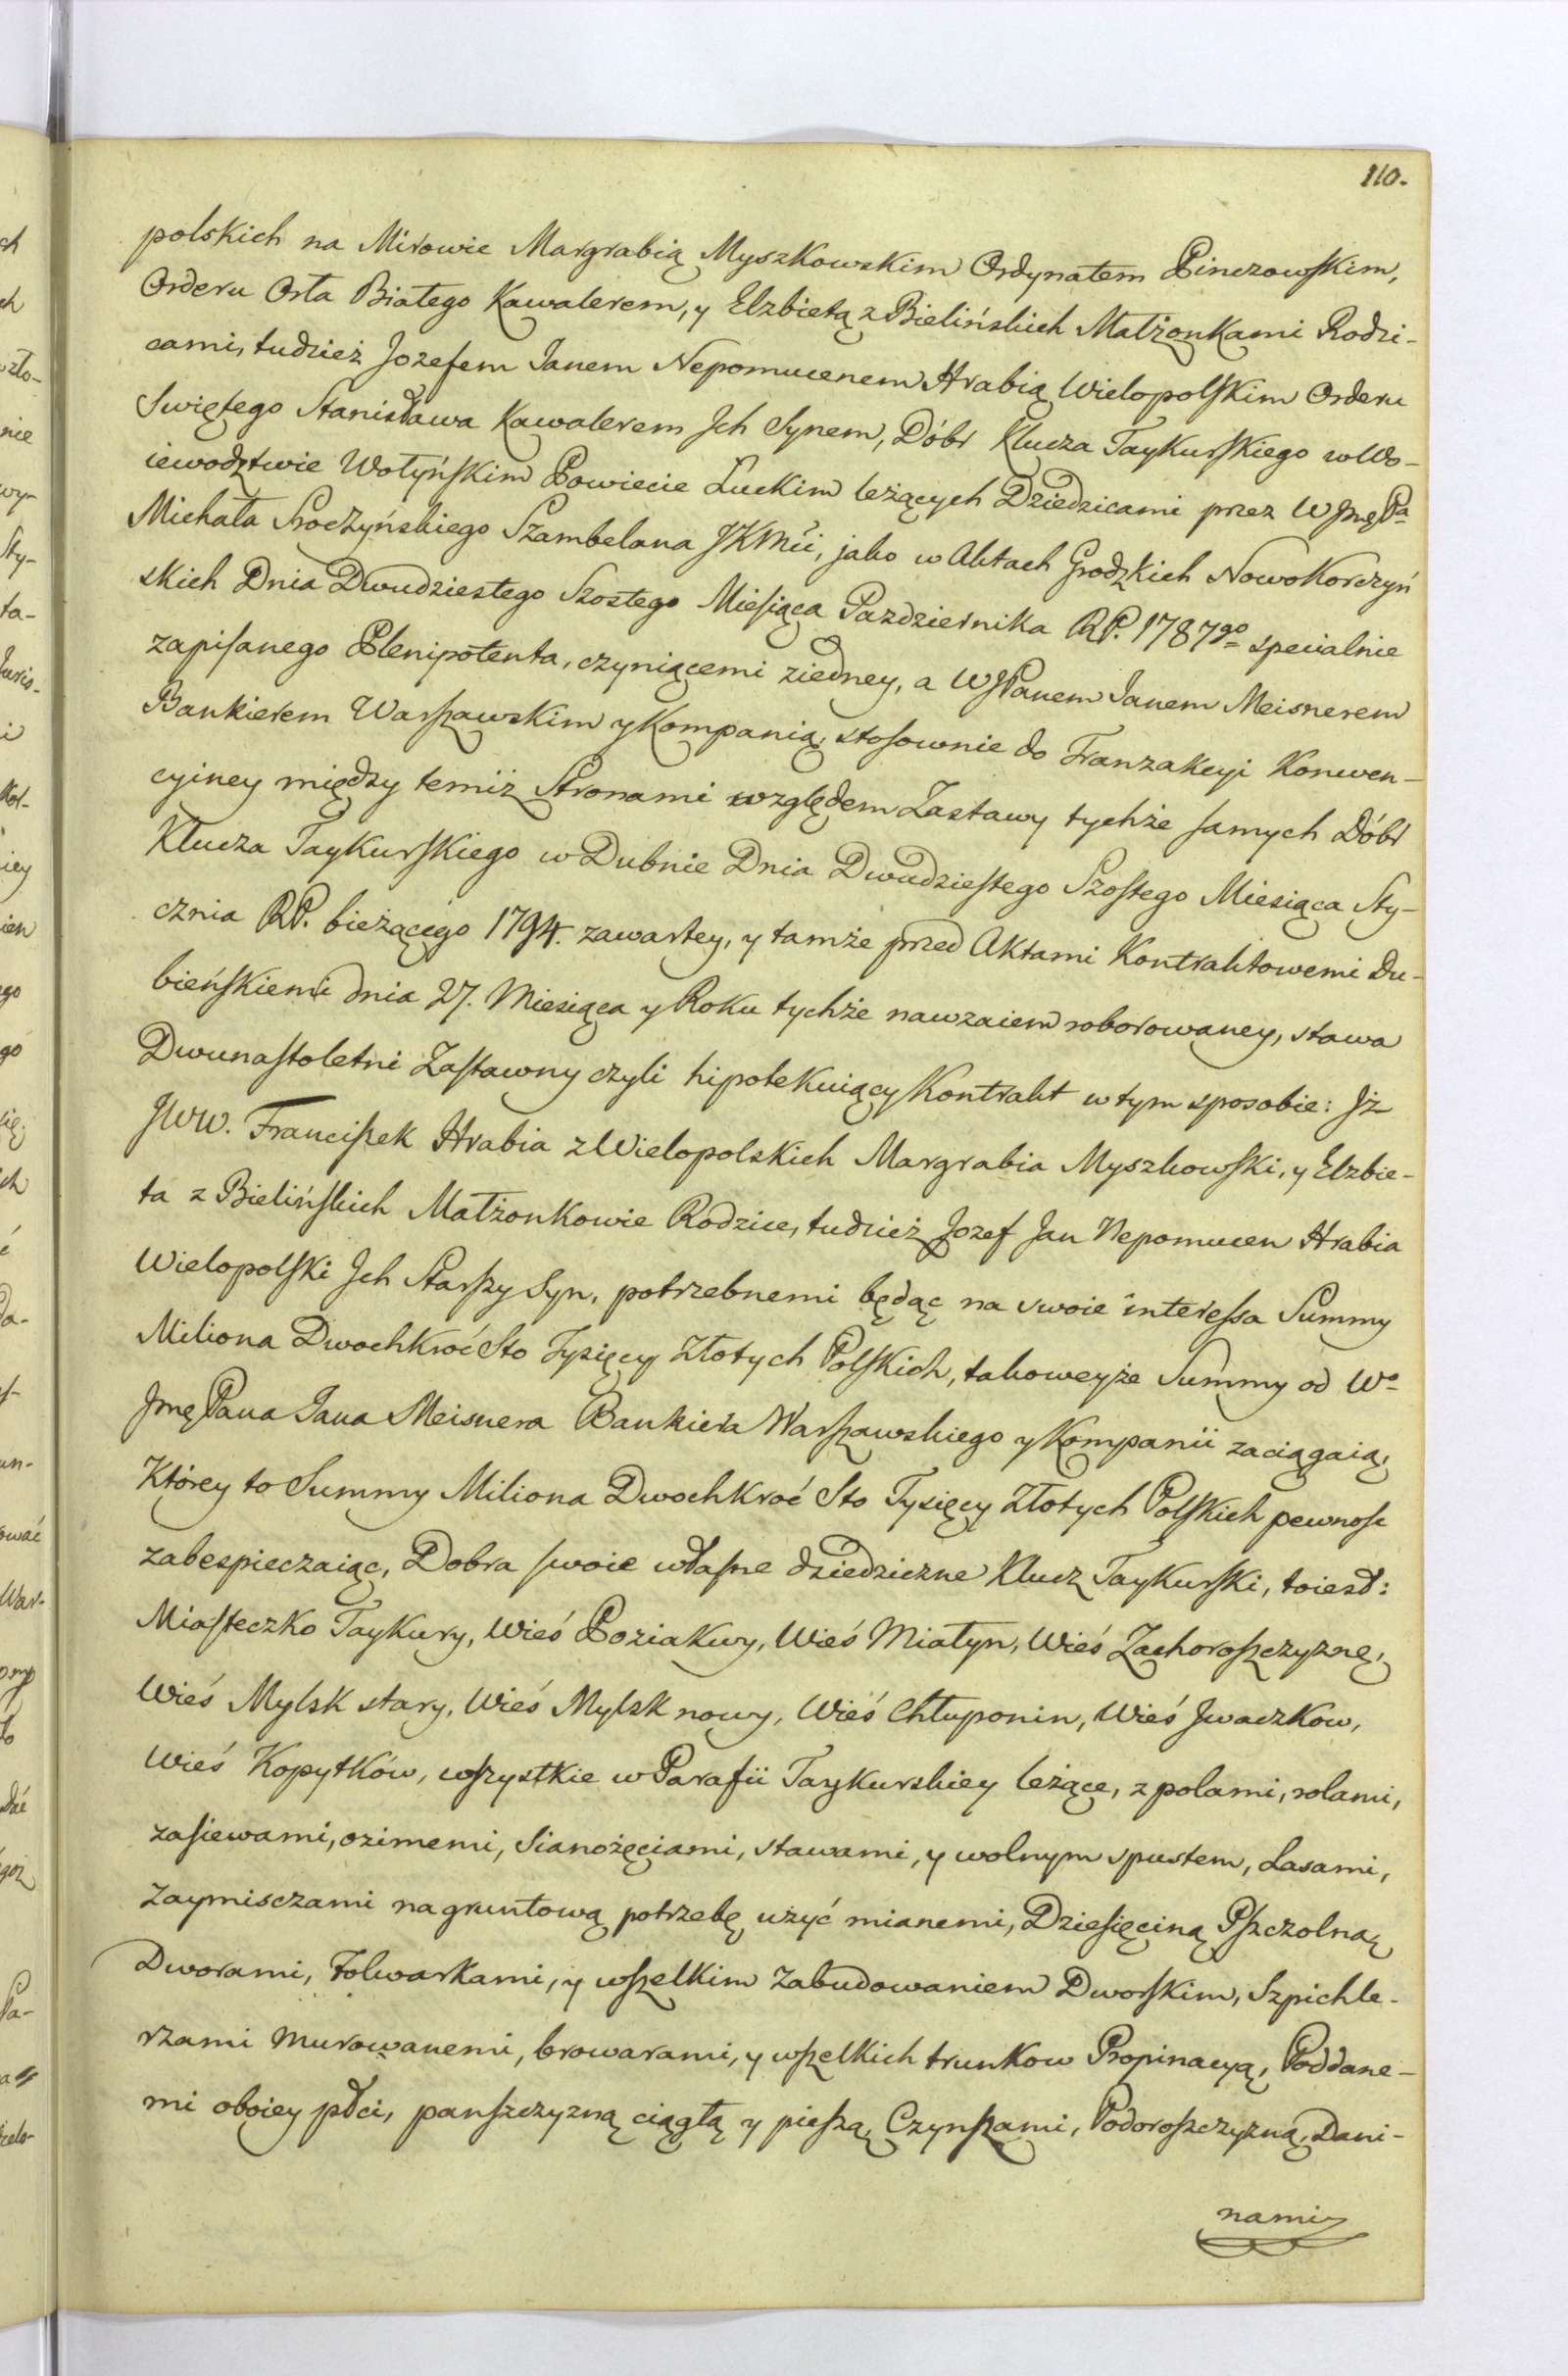 110.
polskich na Mirowie Margrabią Myszkowskim Ordynatem Pinczowskim,
Orderu Orła Białego Kawalerem, y Elzbietą z Bielińskich Małżonkami Rodzi-
cami, tudzież Jozefem Janem Nepomucenem Hrabią Wielopolskim Orderu
Swiętego Stanisława Kawalerem Jch Synem, Dóbr Klucza Taykurskiego w Wo-
iewodztwie Wołyńskim Powiecie Luckim leżących Dziedzicami przez WJmę Pa-
Michała Sroczyńskiego Szambelana JKMci, jako w Aktach Grodzkich NowoKorczyń
skich Dnia Dwudziestego Szostego Miesiąca Pazdziernika RP. 1787go specialnie
zapisanego Plenipotenta, czyniącemi ziedney, a WJPanem Janem Meisnerem
Bankierem Warszawskim y Kompanią, stosownie do Tranzakcyi Konwen-
cyiney między temiż Stronami względem Zastawy tychże samych Dóbr
Klucza Taykurskiego w Dubnie Dnia Dwudziestego Szostego Miesiąca Sty-
cznia RP. bieżącego 1794. zawartey, y tamże przed Aktami Kontraktowemi Du-
bieńskiemi dnia 27. Miesiąca y Roku tychże nawzaiem roborowaney, stawa
Dwunastoletni Zastawny czyli hipotekuiący Kontrakt w tym sposobie: Jż
JWW. Franciszek Hrabia z Wielopolskich Margrabia Myszkowski, y Elzbie-
ta z Bielińskich Małżonkowie Rodzice, tudzież Jozef Jan Nepomucen Hrabia
Wielopolski Jch Starszy Syn, potrzebnemi będąc na swoie interessa Summy
Miliona Dwochkroć Sto Tysięcy Złotych Polskich, takoweyże Summy od Wo
Jmę Pana Jana Meisnera Bankiera Warszawskiego y Kompanii zaciągaią,
Którey to Summy Miliona Dwochkroć Sto Tysięcy Złotych Polskich pewnosc
zabespieczaiąc, Dobra swoie własne dziedziczne Klucz Taykurski, toiest:
Miasteczko Taykury, Wieś Poziakwy, Wieś Miatyn, Wieś Zachoroszczyznę,
Wieś Mylsk stary, Wieś Mylsk nowy, Wieś Chłuponin, Wieś Jwaczkow,
Wieś Kopytków, wszystkie w Parafii Taykurskiey leżące, z polami, rolami,
zasiewami, ozimemi, Sianożęciami, stawami, y wolnym spustem, Lasami,
Zaymisczami na gruntową potrzebę użyć mianemi, Dziesięciną Pszczolną
Dworami, Folwarkami, y wszelkim Zabudowaniem Dworskim, Szpichle-
rzami murowanemi, browarami, y wszelkich trunkow Propinacyą, Poddane-
mi oboiey płci, panszczyzną ciągłą y pieszą, Czynszami, Podoroszczyzną, Dani-
nami